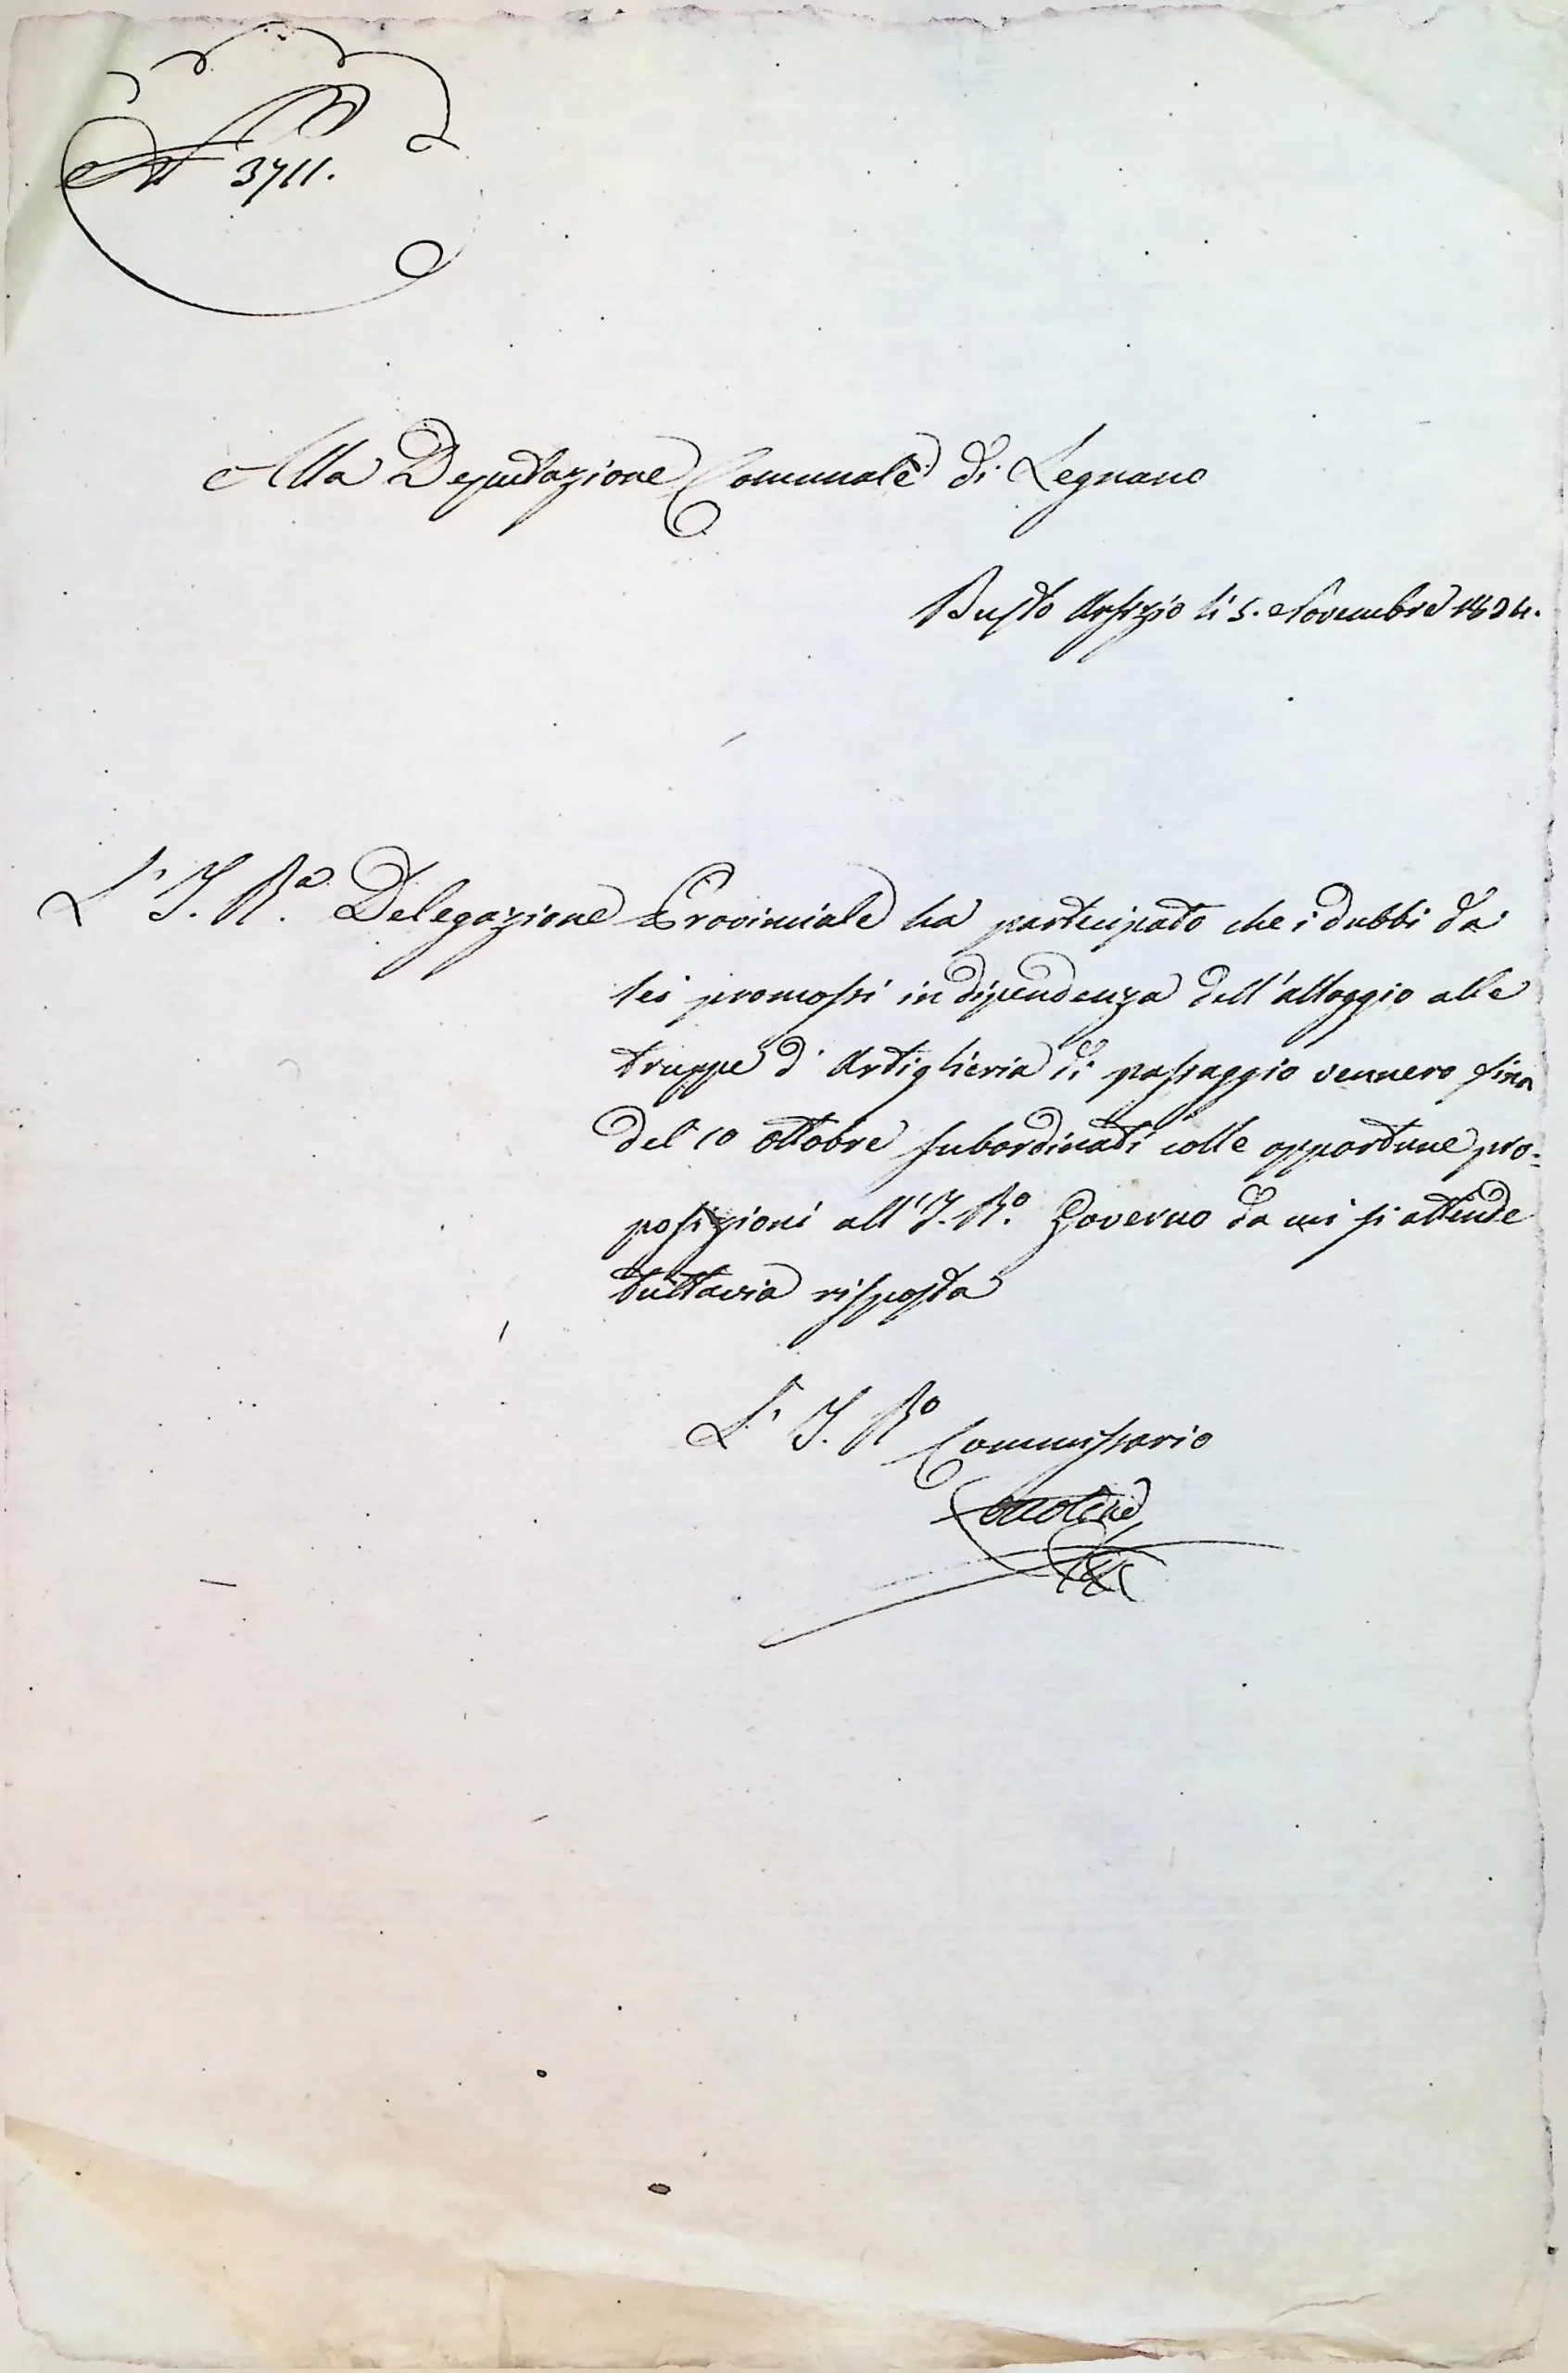 N 3711.
Alla Deputazione Comunale di Legnano
Busto Arsizio li 5. Novembre 1824.
L' I. R.a Delegazione Provinciale ha partecipato che i dubbi da
lei promossi in dipendenza dell'alloggio alle
truppe d'Artiglieria di passaggio vennero fino
del 10 ottobre subordinati colle opportune pro=
posizioni all'I. R.o Governo da cui si attende
tuttavia risposta
L' I. R.o Commissario